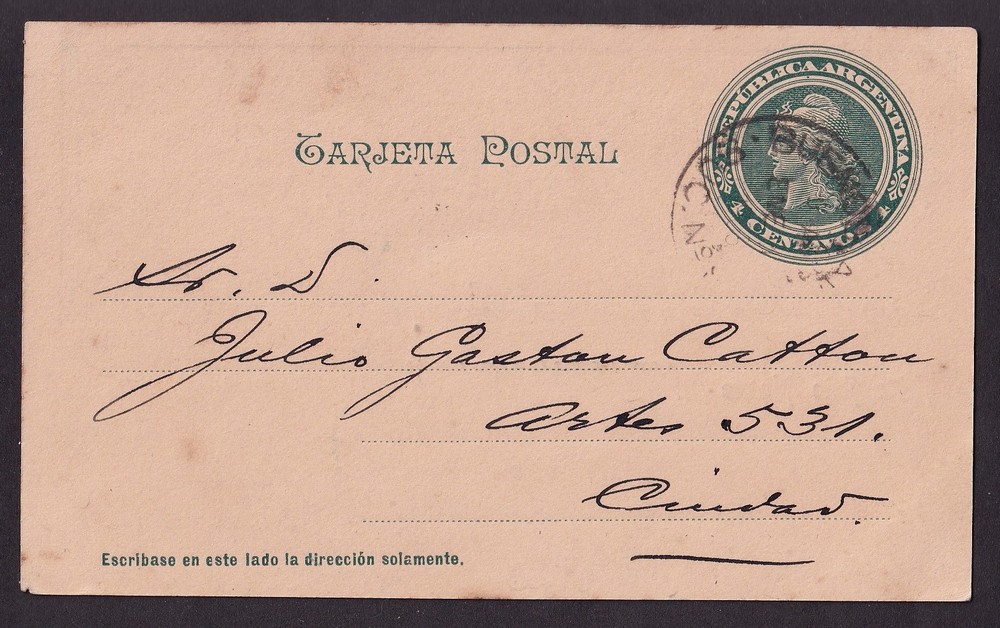 REPÚBLICA ARGENTINA
4 CENTAVOS 4
TARJETA POSTAL
Sr. D.
Julio Gaston Catton
Artes 531.
Ciudad.
Escríbase en este lado la dirección solamente.